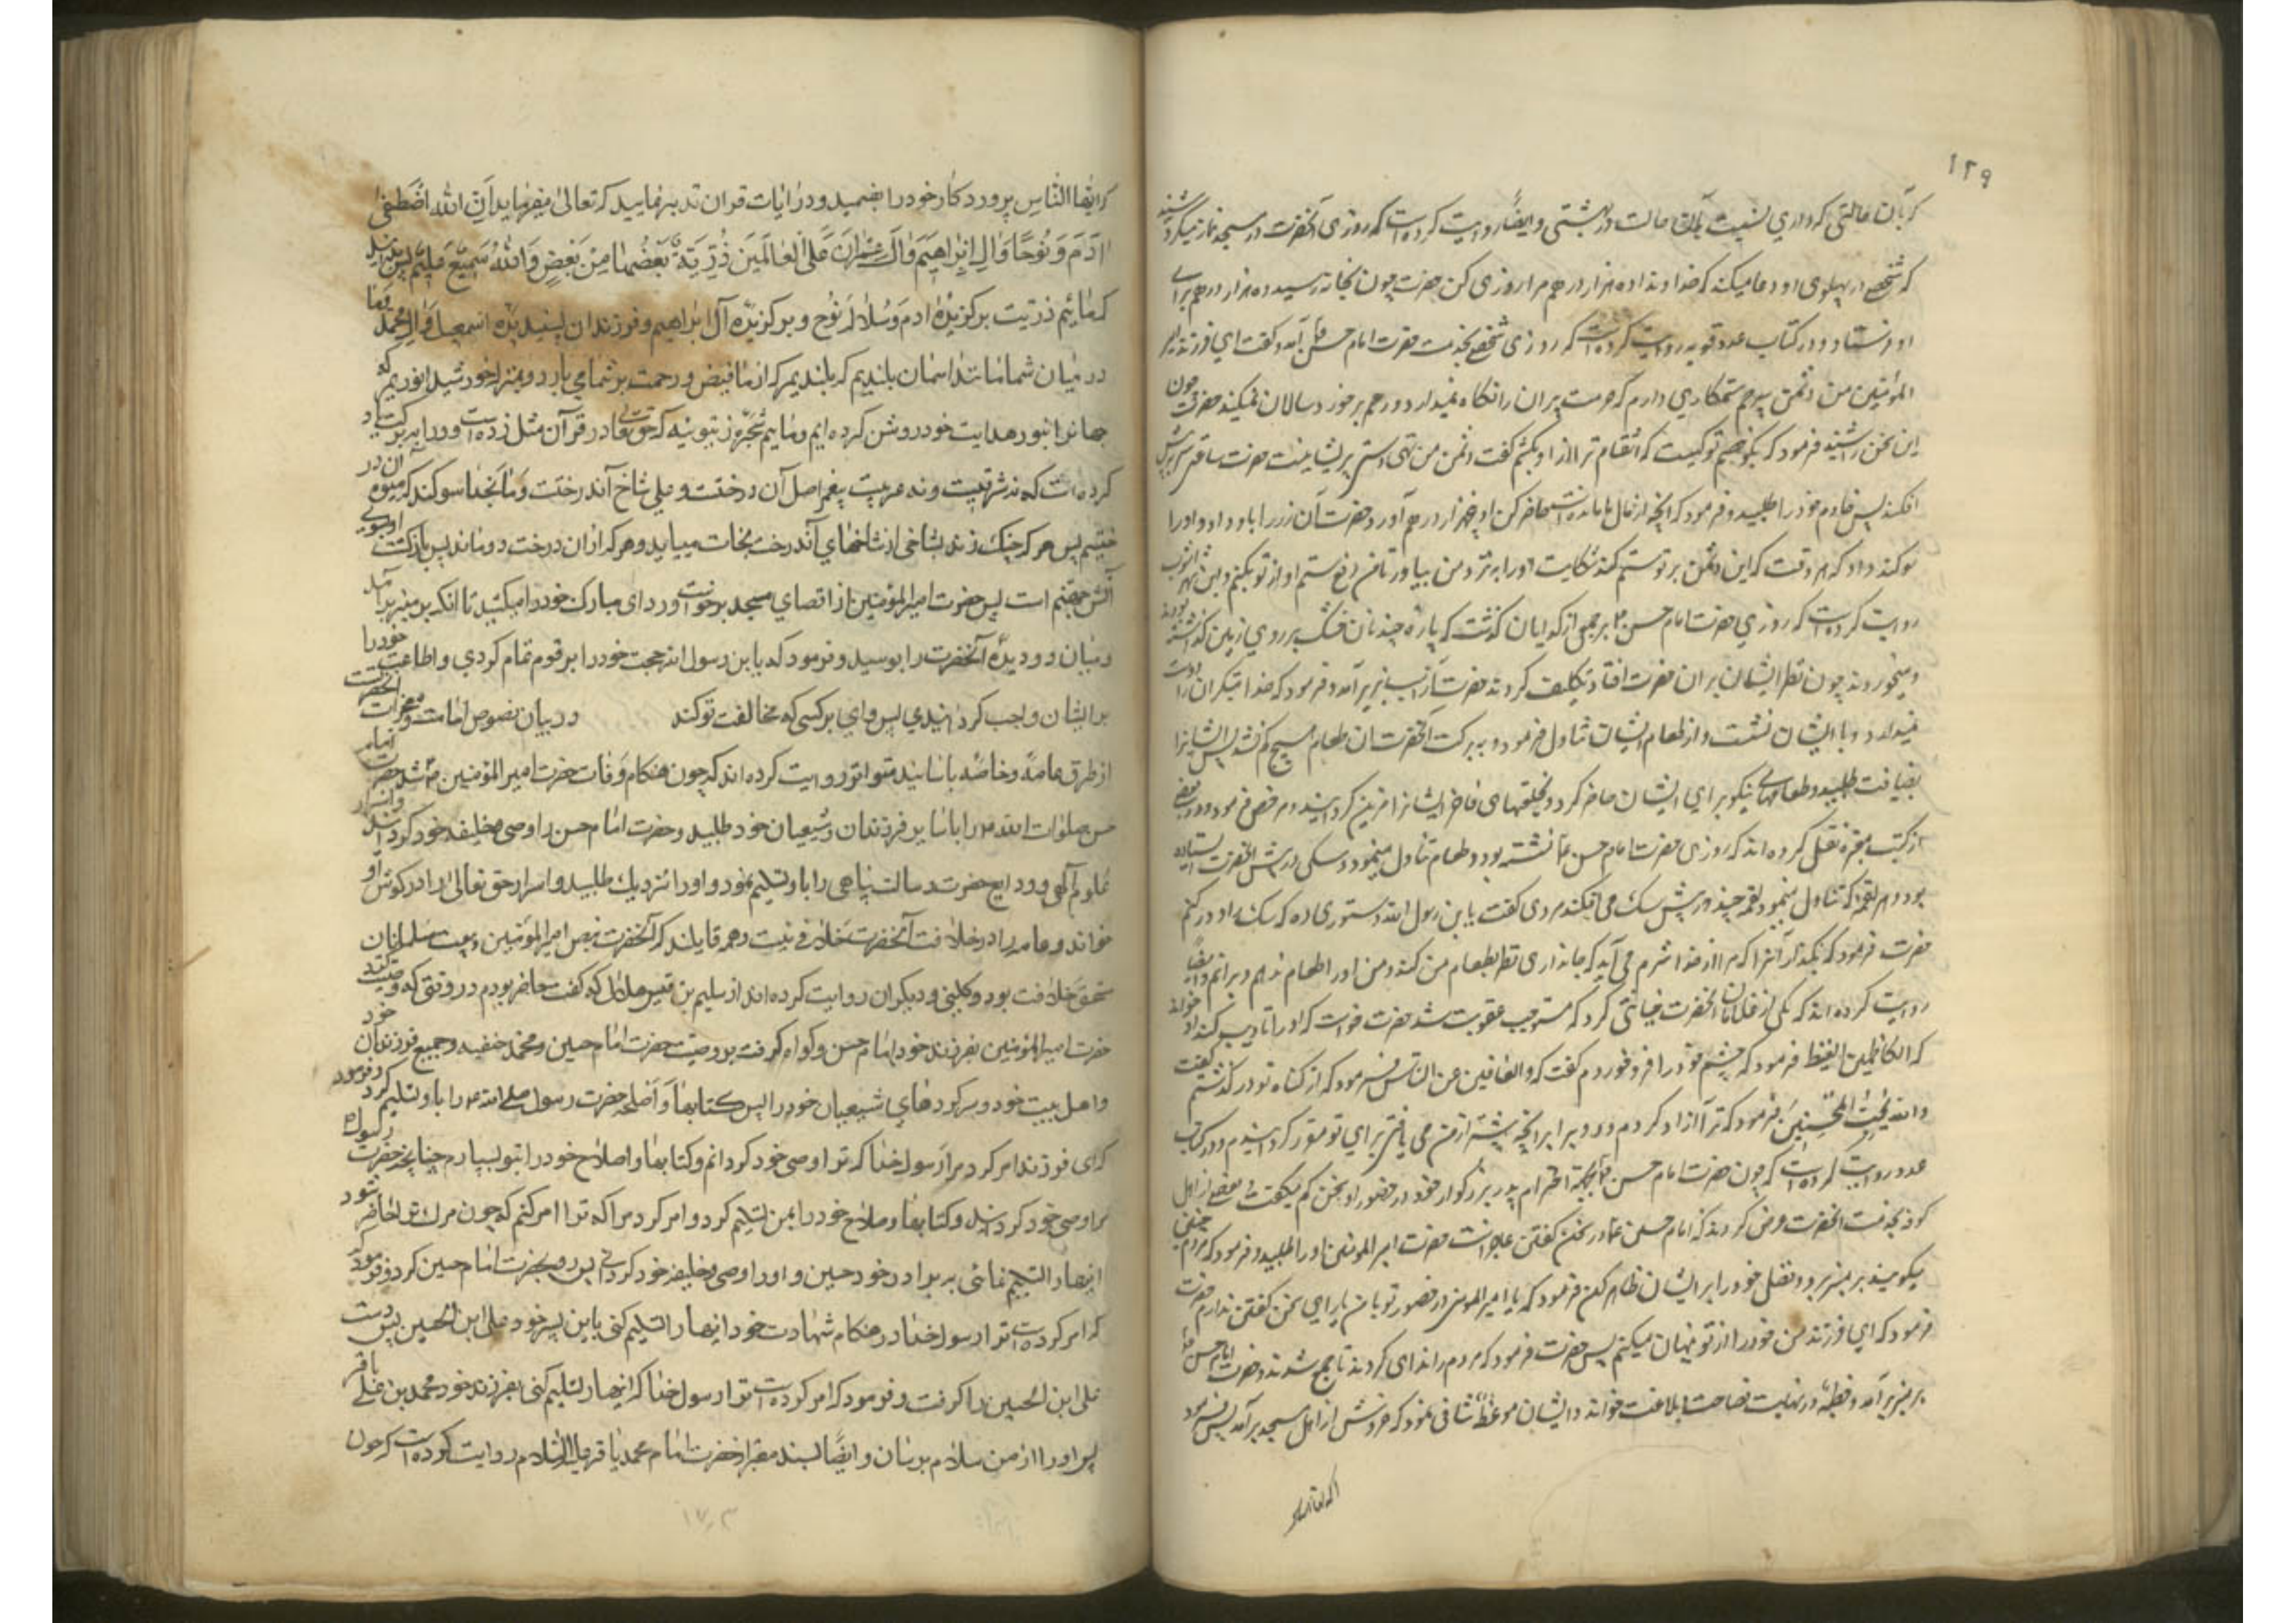 ۱۲۹
که بآن حالتی که داری نسبت بآن حالت در بهشتی و ایضاً روایت کرده است که روزی آنحضرت در مسجد نماز میکرد شنید
که شخصی در پهلوی او دعا میکند که خداوندا ده هزار درهم مرا روزی کن حضرت چون بخانه رسید ده هزار درهم برای
او فرستاد و در کتاب عدد قویه روایت کرده است که روزی شخصی بخدمت حضرت امام حسن آمد و گفت ای فرزند امیر
المؤمنین من دشمن بیرحم ستمکاری دارم که حرمت پیران را نگاه نمیدارد و رحم بر خورد سالان نمیکند حضرت چون
این سخن را شنید فرمود که بگو خصم تو کیست که انتقام ترا از او بکشم گفت دشمن من تهی دستی و پریشانیست حضرت ساعتی سر بزیر
افکند پس خادم خود را طلبید و فرمود که آنچه از مال ما مانده است حاضر کن او پنجهزار درهم آورد حضرت آن زر را باو داد و او را
سوگند داد که هر وقت که این دشمن بر تو ستم کند شکایت او را بنزد من بیاور تا من دفع ستم او از تو بکنم و ابن شهر آشوب
روایت کرده است که روزی حضرت امام حسن بر جمعی از گدایان گذشت که پاره چند نان خشک بر روی زمین گذاشته بودند
و میخوردند چون نظر ایشان بران حضرت افتاد تکلیف کردند حضرت از اسب بزیر آمد و فرمود که خدا متکبران را دوست
نمیدارد و با ایشان نشست و از طعام ایشان تناول فرمود و به برکت آنحضرت آن طعام هیچ کم نشد پس ایشانرا
بضیافت طلبید و طعامهای نیکو برای ایشان حاضر کرد و بخلعتهای فاخر ایشانرا مزین گردانید و مرخص فرمود و در بعضی
از کتب معتبره نقل کرده اند که روزی حضرت امام حسن نشسته بود و طعام تناول مینمود و سگی در پیش آنحضرت ایستاده
بود و هر لقمه که تناول مینمود لقمه چند در پیش سگ می افکند مردی گفت یابن رسول الله دستوری ده که سگ را دور کنم
حضرت فرمود که بگذار آنرا که مرا از خدا شرم می آید که جانداری نظر بطعام من کند و من او را طعام ندهم و برانم و ایضاً
روایت کرده اند که یکی از غلامان آنحضرت خیانتی کرد که مستوجب عقوبت شد حضرت خواست که او را تادیب کند او خواند
که الکاظمین الغیظ فرمود که خشم خود را فرو خوردم گفت که والعافین عن الناس فرمود که از گناه تو در گذشتم گفت
والله یحب المحسنین فرمود که ترا آزاد کردم و دو برابر آنچه پیشتر از من می یافتی برای تو مقرر گردانیدم و در کتاب
عدد روایت کرده است که چون حضرت امام حسن بجهة احترام پدر بزرگوار خود در حضور او سخن کم میگفت بعضی از اهل
کوفه بخدمت آنحضرت عرض کردند که امام حسن در سخن گفتن عاجز است حضرت امیر المومنین او را طلبید و فرمود که مردم چنین
میگویند بر منبر برو و فضل خود را بر ایشان ظاهر کن فرمود که یا امیر المومنین در حضور تو یارای سخن گفتن ندارم حضرت
فرمود که ای فرزند من خود را از تو پنهان میکنم پس حضرت فرمود که مردم را ندا کردند تا جمع شدند و حضرت امام حسن
بر منبر بر آمد و خطبه در نهایت فصاحت و بلاغت خواند و ایشان را موعظه شافی نمود که خروش از اهل مسجد بر آمد پس فرمود
که ایها الناس پروردگار خود را بفهمید و در آیات قران تدبر نمایید که تعالی میفرماید ان الله اصطفی
ادم و نوحا وال ابراهیم وال عمران علی العالمین ذریة بعضها من بعض والله سمیع علیم پس بدانید
که مائیم ذریت برگزیده ادم و سلاله نوح و برگزیده آل ابراهیم و فرزندان پسندیده اسمعیل و ال محمد
در میان شما مانند اسمان بلندیم که از ما فیض و رحمت بر شما می بارد و بمنزله خورشید انوریم که
جهانرا بنور هدایت خود روشن کرده ایم و مائیم شجره زیتونیه که حق تعالی در قرآن مثل زده است و او را ببرکت یاد
کرده است که نه شرقیست و نه غربیست پیغمبر اصل آن درختست و علی شاخ آندرخت و ما بخدا سوگند که میوه آن در
ختیم پس هر که چنک زند بشاخی از شاخهای آندرخت نجات مییابد و هر که ازان درخت دور ماند پس بازگشت او بسوی
آتش جهنم است پس حضرت امیر المؤمنین از اقصای مسجد برخواست و ردای مبارک خود را میکشید تا انکه بر منبر بر آمد
و میان دو دیده آنحضرت را بوسید و فرمود که یابن رسول الله حجت خود را بر قوم تمام کردی و اطاعت خود را
بر ایشان واجب گردانیدی پس وای بر کسی که مخالفت تو کند در بیان نصوص امامت و معجزات آنحضرت
از طرق عامه و خاصه باسانید متواتر روایت کرده اند که چون هنگام وفات حضرت امیر المؤمنین شد حضرت امام
حسن صلوات الله را با سایر فرزندان و شیعیان خود طلبید و حضرت امام حسن را وصی و خلیفه خود گردانید و اسرار
علوم آلهی و ودایع حضرت رسالت پناهی را باو تسلیم نمود و او را نزدیک طلبید و اسرار حق تعالی را در گوش او
خواند و عامه را در خلافت آنحضرت خلافی نیست و همه قایلند که آنحضرت بنص امیر المؤمنین و بیعت مسلمانان
مستحق خلافت بود و کلینی و دیگران روایت کرده اند از سلیم بن قیس هلالی که گفت حاضر بودم در وقتی که وصیت کرد
حضرت امیر المؤمنین بفرزند خود امام حسن و گواه گرفت بر وصیت حضرت امام حسین و محمد حنفیه و جمیع فرزندان خود
و اهل بیت خود و سرکردهای شیعیان خود را پس کتابها و اسلحه حضرت رسول صلی الله را باو تسلیم کرد و فرمود
که ای فرزند امر کرد مرا رسول خدا که ترا وصی خود گردانم و کتابها و اصلاح خود را بتو بسپارم چنانچه حضرت رسول
مرا وصی خود گردانید و کتابها و سلاح خود را بمن تسلیم کرد و امر کرد مرا که ترا امر کنم که چون مرک ترا حاضر شود
اینها را تسلیم نمائی به برادر خود حسین و او را وصی و خلیفه خود گردانی پس رو بحضرت امام حسین کرد و فرمود
که امر کرده است ترا رسول خدا در هنگام شهادت خود اینها را تسلیم کنی باین پسر خود علی ابن الحسین پس دست
علی ابن الحسین را گرفت و فرمود که امر کرده است ترا رسول خدا که اینها را تسلیم کنی بفرزند خود محمد بن علی باقر
پس او را از من سلام برسان و ایضاً بسند معتبر از حضرت امام محمد باقر علیه السلام روایت کرده است که چون